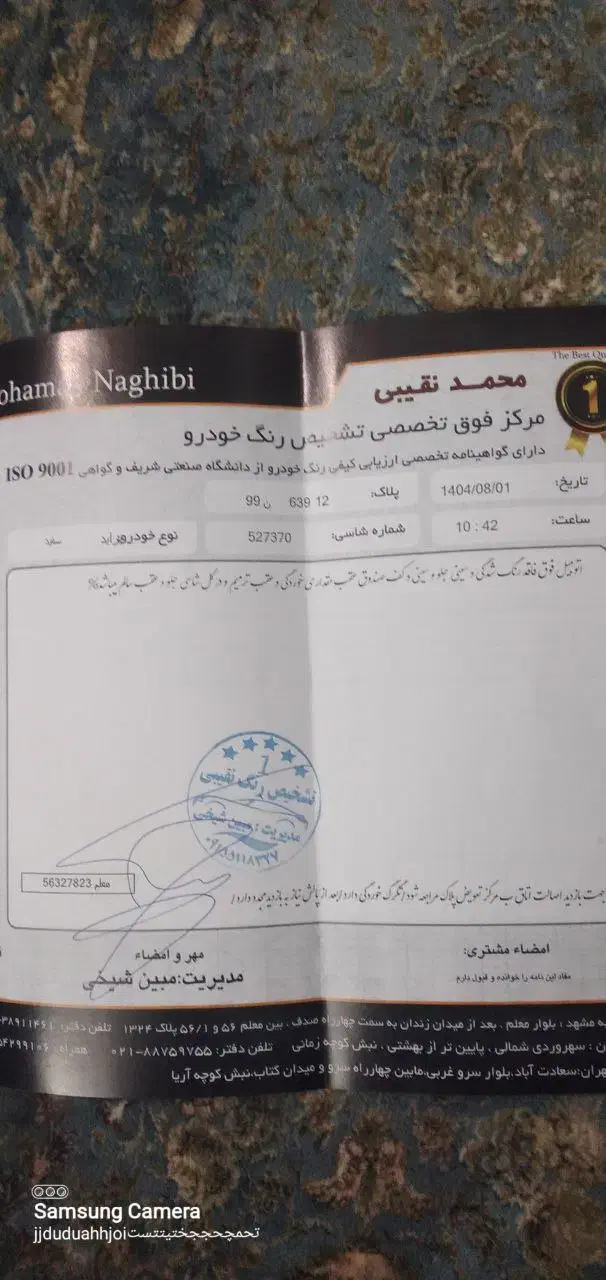 The Best Qu
ohama Naghibi
محمد نقیبی
1
مرکز فوق تخصصی تشخیص رنگ خودرو
دارای گواهینامه تخصصی ارزیابی کیفی رنگ خودرو از دانشگاه صنعتی شریف و گواهی ISO 9001
تاریخ: 1404/08/01 پلاک: 12 639 ن 99
ساعت: 10 : 42 شماره شاسی: 527370 نوع خودرو: پراید سفید
اتومبیل فوق فاقد رنگ شدگی و سینی جلو و سینی و کف صندوق عقب مقداری خوردگی و عقب ترمیم و در کل شاسی جلو و عقب سالم میباشد
1
تشخیص رنگ نقیبی
مدیریت : مبین شیخی
معلم 56327823
جهت بازدید اصالت اتاق ب مرکز تعویض پلاک مراجعه شود/گلگرک خوردگی دارد/بعد از پالش نیاز به بازدید مجدد دارد/
امضاء مشتری:
مفاد این نامه را خوانده و قبول دارم
مهر و امضاء
مدیریت:مبین شیخی
ه مشهد : بلوار معلم . بعد از میدان زندان به سمت چهارراه صدف . بین معلم ۵۶ و ۵۶/۱ پلاک ۱۳۲۴ تلفن دفتر: ۳۸۹۱۱۴۶۱
ن : سهروردی شمالی . پایین تر از بهشتی . نبش کوچه زمانی تلفن دفتر: ۸۸۷۵۹۷۵۵-۰۲۱ همراه:
هران:سعادت آباد.بلوار سرو غربی.مابین چهارراه سرو و میدان کتاب.نبش کوچه آریا
Samsung Camera
jjduduahhjoiتحمچحججختیتتست